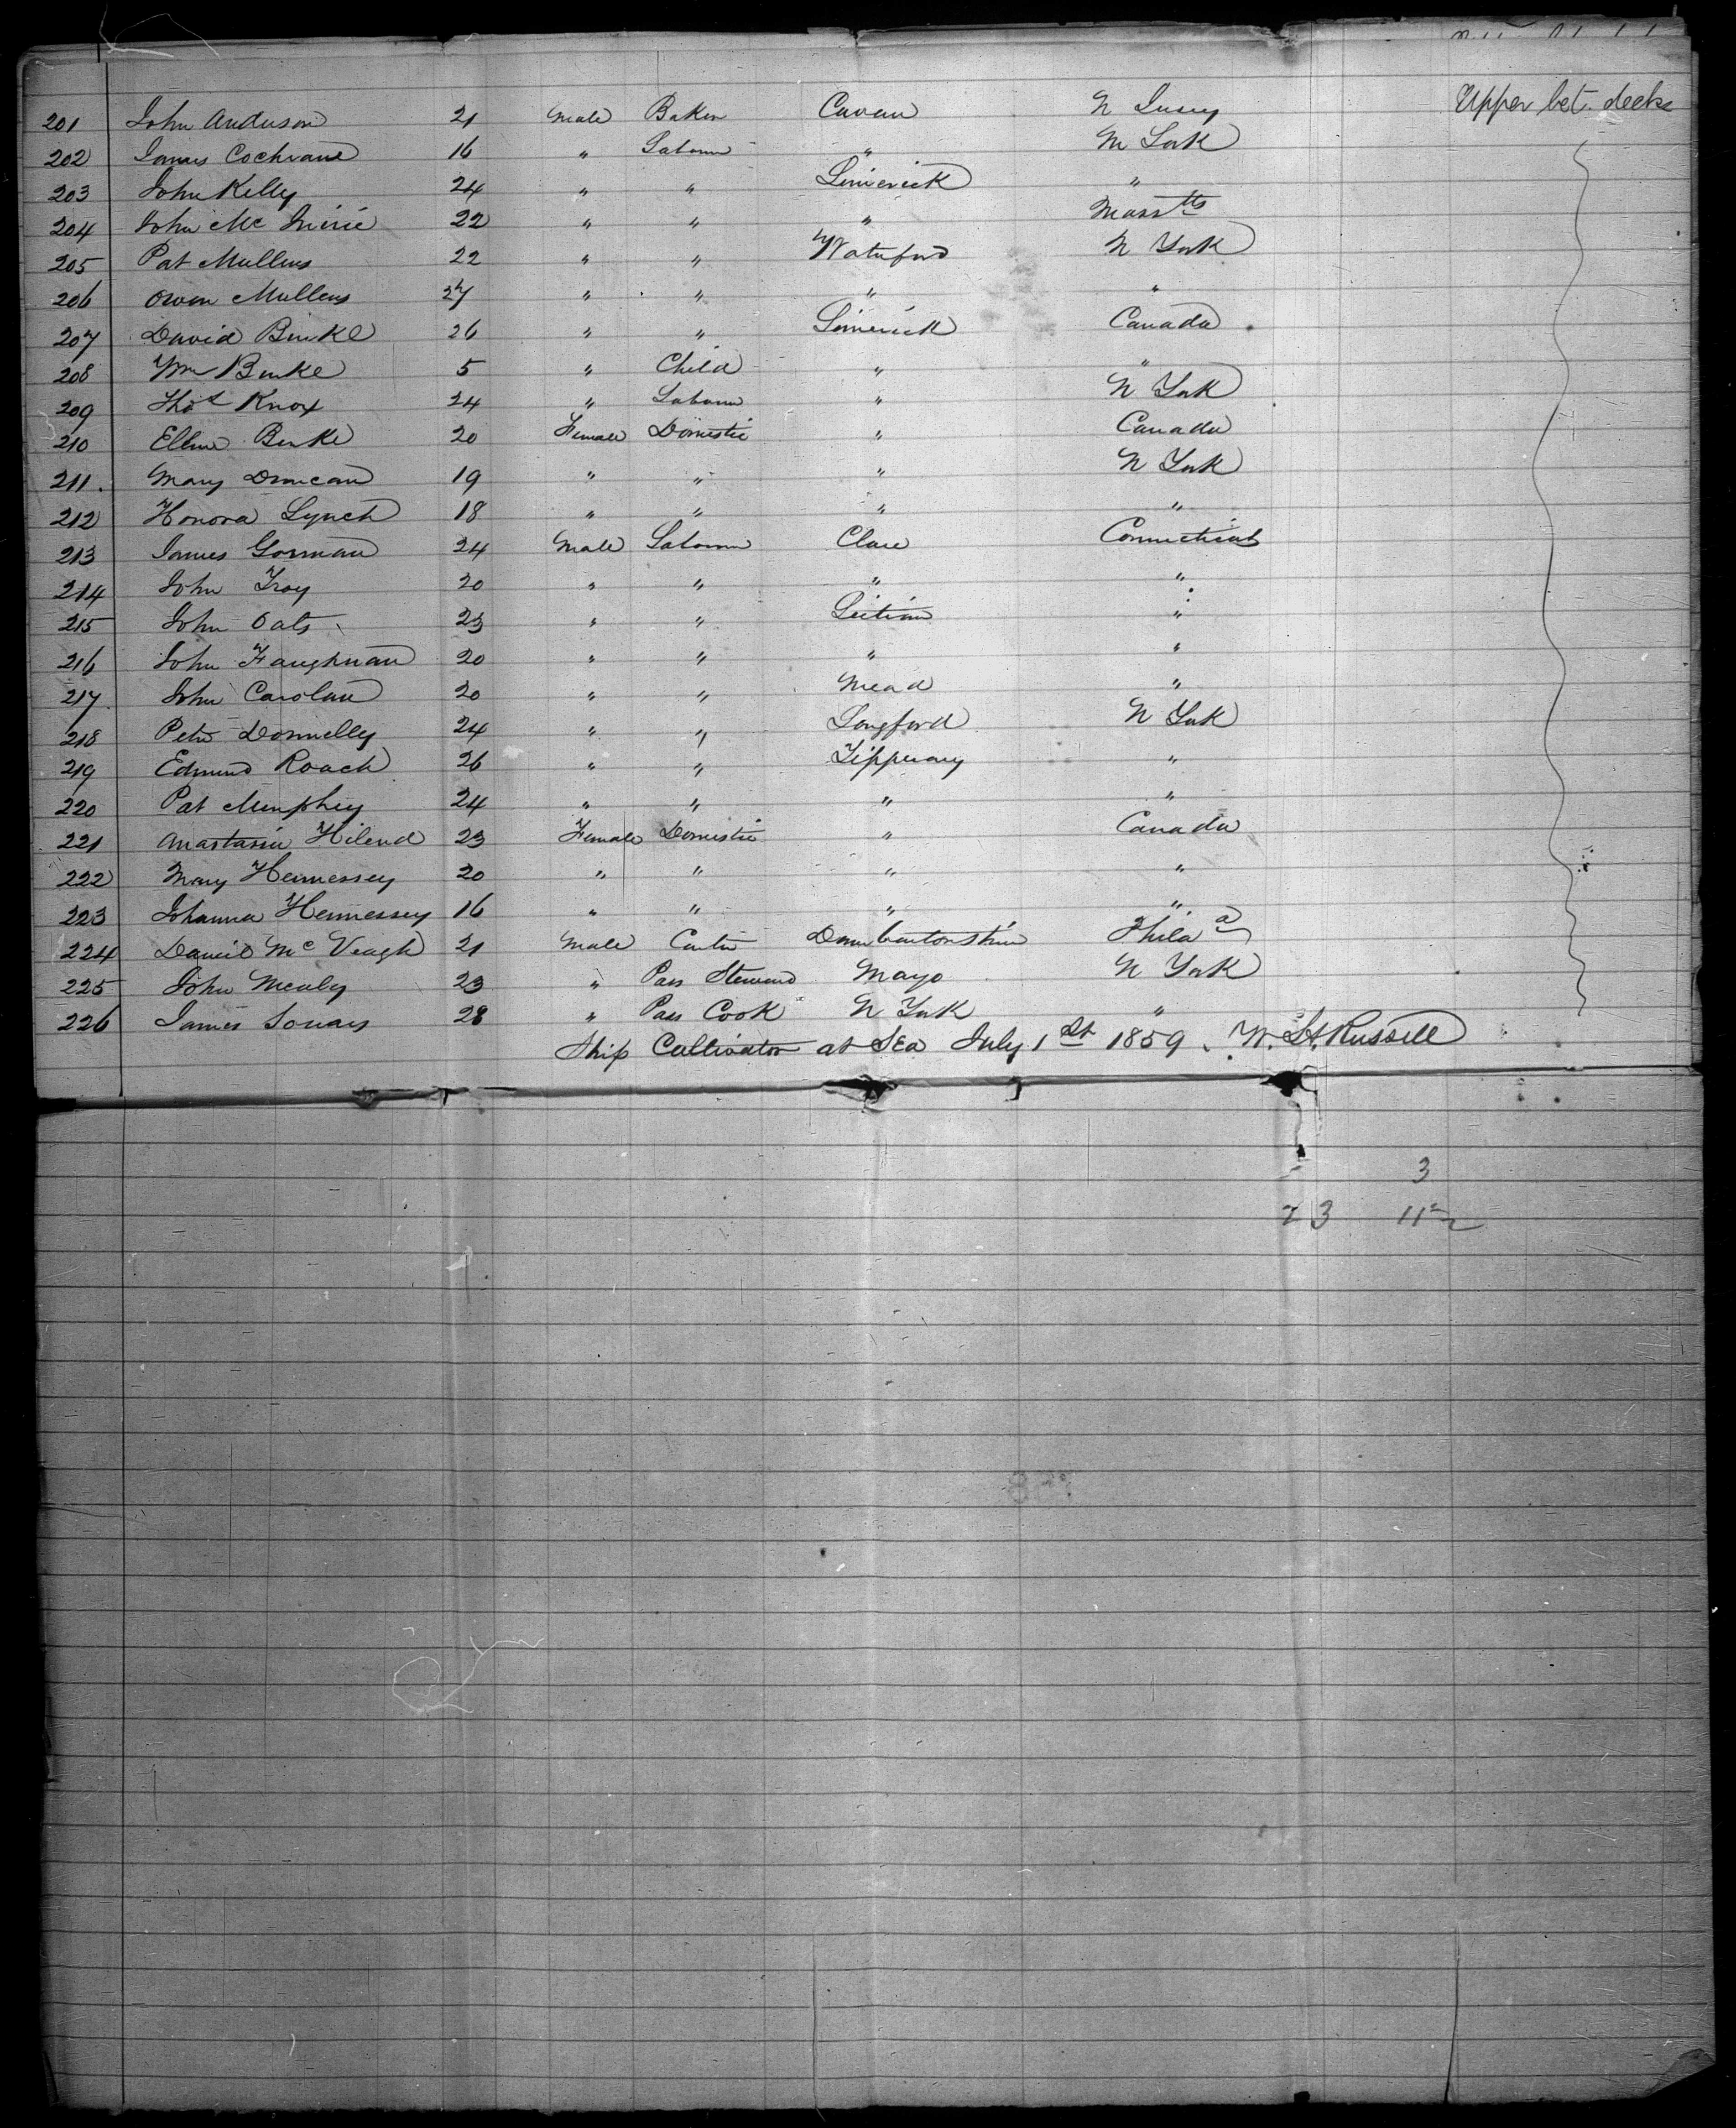 Upper bet. decks
201 John Anderson 21 Male Baker Cavan N Jersey
202 James Cochrane 16 " Laborer " N York
203 John Kelly 24 " " Limerick "
204 John Mc 22 " " " Masstts
205 Pat Mullens 22 " " Waterford N York
206 Owen Mullens 27 " " " "
207 David Burke 26 " " Limerick Canada
208 Wm Burke 5 " Child " "
209 Thos Knox 24 " Laborer " N York
210 Ellen Burke 20 Female Domestic " Canada
211 Mary Duncan 19 " " " N York
212 Honora Lynch 18 " " " "
213 James Gorman 24 Male Laborer Clare Connecticut
214 John Troy 20 " " " "
215 John Oats 23 " " Leitrim "
216 John Faughnan 20 " " " "
217 John Carolan 20 " " Mead "
218 Peter Donnelly 24 " " Longford N York
219 Edmund Roach 26 " " Tipperary "
220 Pat Murphy 24 " " " "
221 Anastasia Hilend 23 Female Domestic " Canada
222 Mary Hennessey 20 " " " "
223 Johanna Hennessey 16 " " " "
224 David Mc Veagh 21 Male Carter Dumbartonshire Phila a
225 John Mealy 23 " Pass Steward Mayo N York
226 James 28 " Pass Cook N York "
Ship Cultivator at Sea July 1st 1859. W. H. Russell
3
23